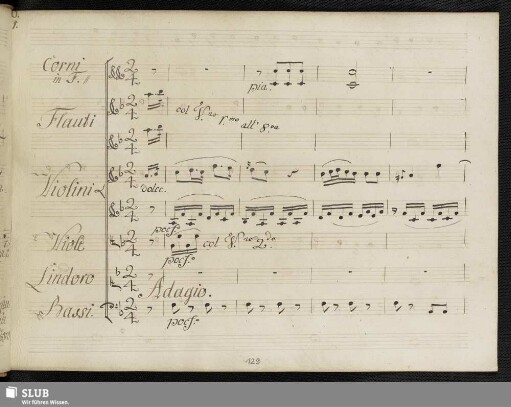 Corni
in F.
pia:
Flauti
col V.no p.mo all' 8.va
Violini
dolce.
pocf.o
Viole
col V.no 2.do
pocf.o
Lindoro
Adagio.
Bassi.
pocf.o
129
SLUB
Wir führen Wissen.